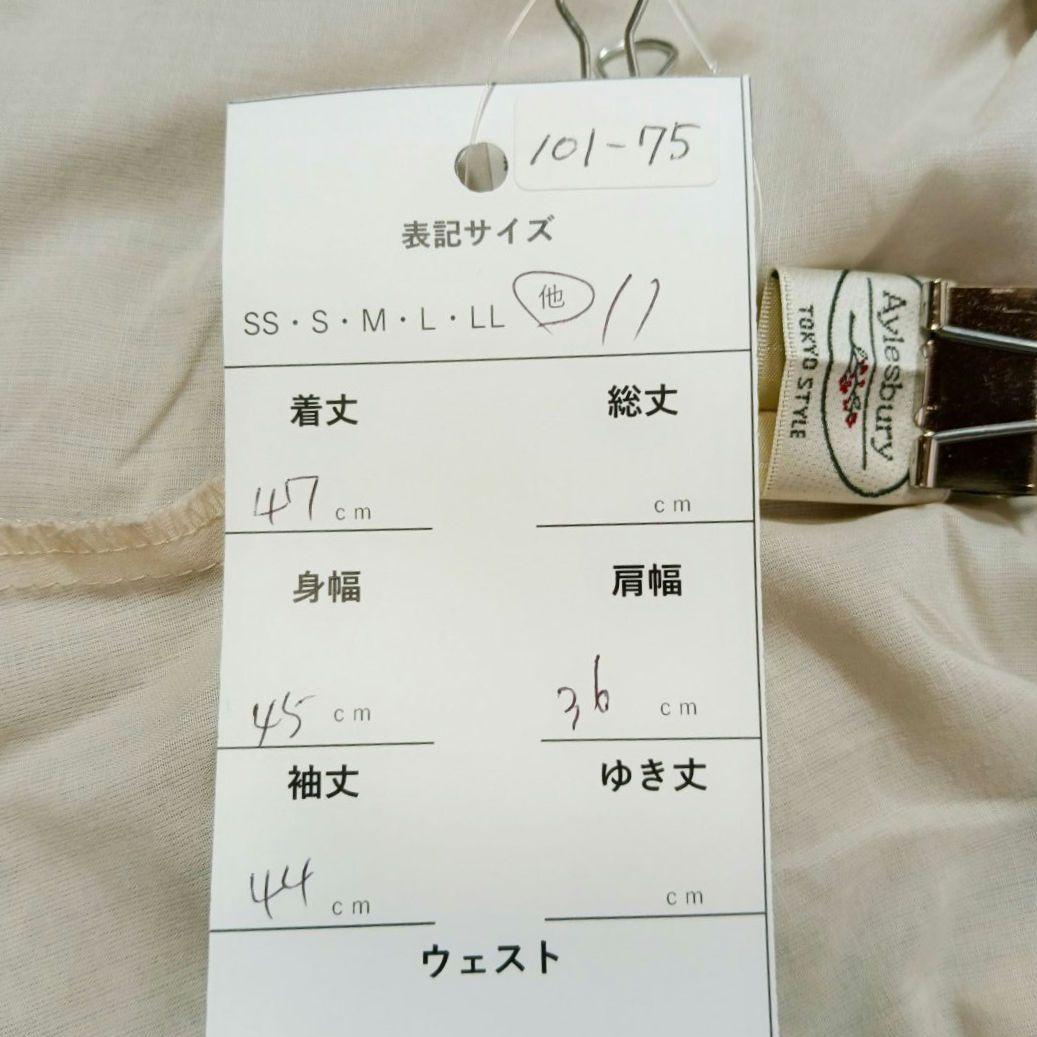 101-75
表記サイズ
SS・S・M・L・LL 他 11
着丈 総丈
47 cm cm
身幅 肩幅
45 cm 36 cm
袖丈 ゆき丈
44 cm cm
ウェスト
Aylesbury
TOKYO STYLE